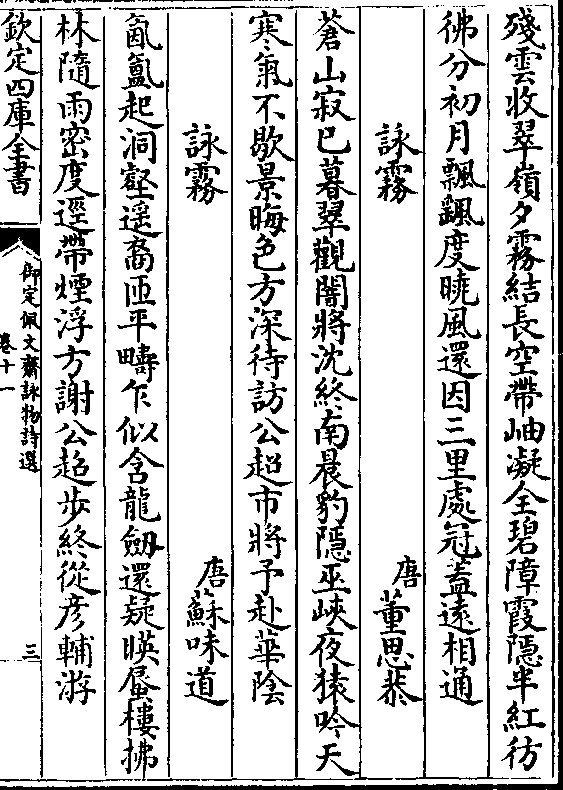 殘雲收翠嶺夕霧結長空帶岫凝全碧障霞隱半紅彷
彿分初月飄颻度曉風還因三里處冠葢遠相通
詠霧　唐董思恭
蒼山寂已暮翠觀闇將沈終南晨豹隱巫峽夜猿吟天
寒氣不歇景晦色方深待訪公超市將予赴華陰
詠霧　唐蘇味道
氤氲起洞壑遥裔匝平疇乍似含龍劒還疑暎蜃樓拂
林隨雨密度逕帶煙浮方謝公超步終從彦輔游
欽定四庫全書
御定佩文齋詠物詩選
卷十一
三